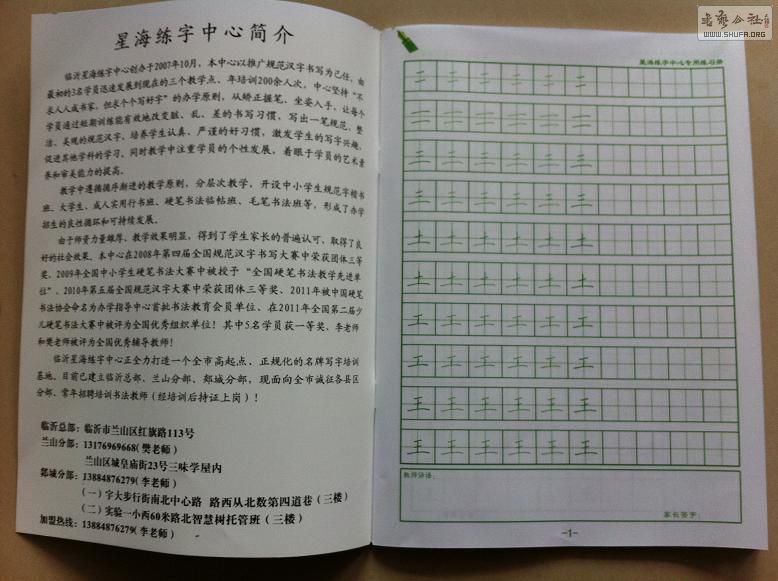 星海练字中心简介
临沂星海练字中心创办于2007年10月，本中心以推广规范汉字书写为已任，由
最初的3名学员迅速发展到现在的三个教学点、年培训200余人次，中心坚持“不
求人人成书家，但求个个写好字”的办学原则，从矫正握笔、坐姿入手，让每个
学员通过短期训练能有效地改变脏、乱、差的书写习惯，写出一笔规范、整
洁、美观的规范汉字，培养学生认真、严谨的好习惯，激发学生的写字兴趣，
促进其他学科的学习，同时教学中注重学员的个性发展，着眼于学员的艺术素
养和审美能力的提高。
教学中遵循循序渐进的教学原则，分层次教学，开设中小学生规范字楷书
班、大学生、成人实用行书班、硬笔书法临帖班、毛笔书法班等，形成了办学
招生的良性循环和可持续发展。
由于师资力量雄厚、教学效果明显，得到了学生家长的普遍认可，取得了良
好的社会效果，本中心在2008年第四届全国规范汉字书写大赛中荣获团体三等
奖、2009年全国中小学生硬笔书法大赛中被授予“全国硬笔书法教学先进单
位”、2010年第五届全国规范汉字大赛荣获团体三等奖、2011年被中国硬笔
书法协会命名为办学指导中心首批书法教育会员单位、在2011年全国第二届少
儿硬笔书法大赛中被评为全国优秀组织单位！其中5名学员获一等奖、李老师
和樊老师被评为全国优秀辅导教师！
临沂星海练字中心正全力打造一个全市高起点、正规化的名牌写字培训
基地、目前已建立临沂总部、兰山分部、郯城分部，现面向全市诚征各县区
分部、常年招聘培训书法教师（经培训后持证上岗）！
临沂总部：临沂市兰山区红旗路113号
兰山分部：13176969668(樊老师)
兰山区城皇庙街23号三味学屋内
郯城分部：13884876279(李老师)
（一）字大步行街南北中心路 路西从北数第四道巷（三楼）
（二）实验一小西60米路北智慧树托管班（三楼）
加盟热线：13884876279(李老师)
书艺公社
WWW.SHUFA.ORG
星海练字中心专用练习册
二 二 二 二 二 二
二 二 二 二 二 二
三 三 三 三 三 三
三 三 三 三 三 三
土 土 土 土 土 土
土 土 土 土 土 土
王 王 王 王 王 王
王 王 王 王 王 王
王 王 王 王 王 王
王 王 王 王 王 王
教师评语：
家长签字：
-1-